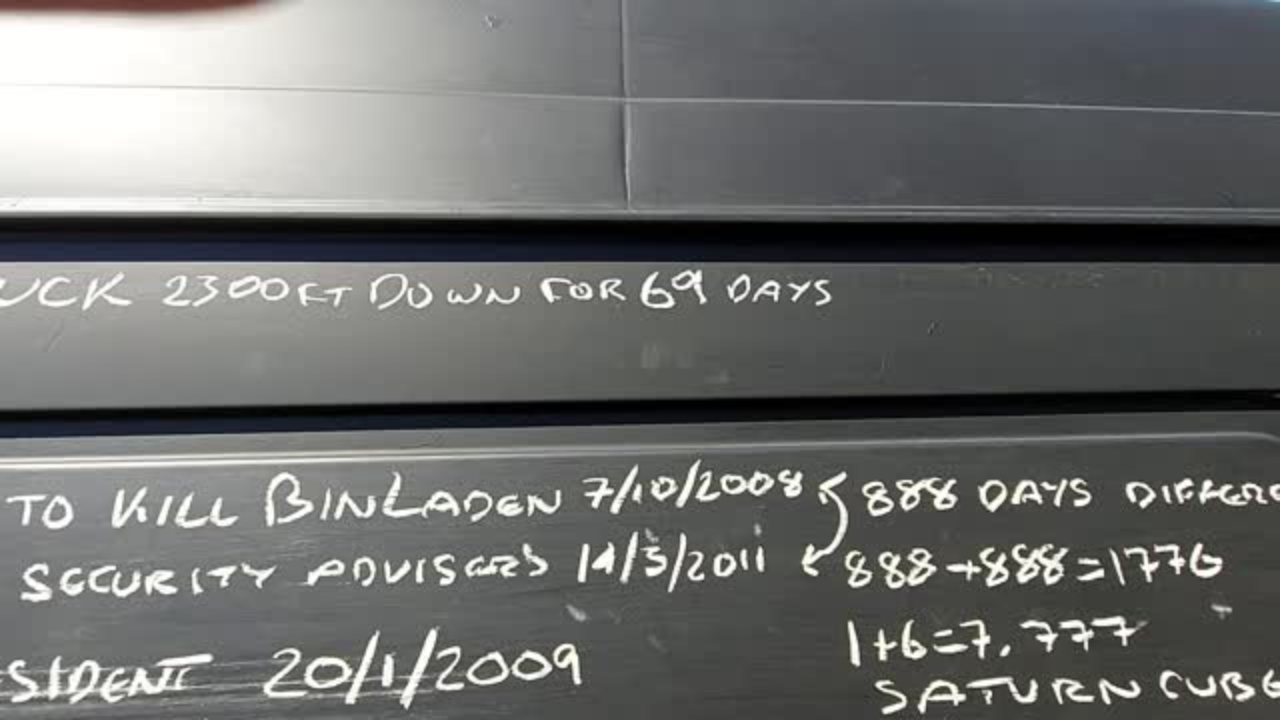 UCK 2300FT DOWN FOR 69 DAYS
TO KILL BINLADEN 7/10/2008 888 DAYS DIFFERE
SECURITY ADVISERS 14/3/2011 888+888=1776
1+6=7. 777
SIDENT 20/1/2009
SATURN CUBE